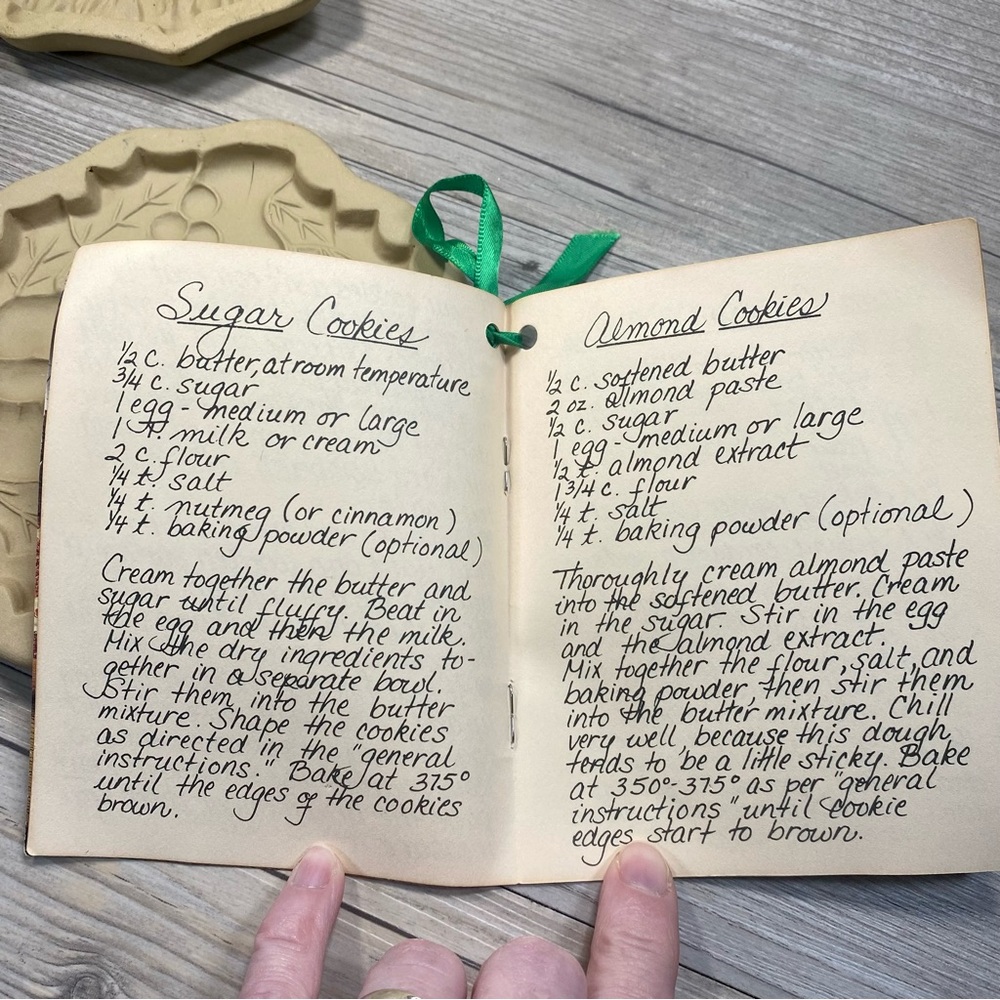 Sugar Cookies
½ c. butter, at room temperature
¾ c. sugar
1 egg - medium or large
1 T. milk or cream
2 c. flour
¼ t. salt
¼ t. nutmeg (or cinnamon)
¼ t. baking powder (optional)
Cream together the butter and
sugar until fluffy. Beat in
the egg and then the milk.
Mix the dry ingredients to-
gether in a separate bowl.
Stir them into the butter
mixture. Shape the cookies
as directed in the "general
instructions." Bake at 375°
until the edges of the cookies
brown.
Almond Cookies
½ c. softened butter
2 oz. almond paste
½ c. sugar
1 egg - medium or large
½ t. almond extract
1 3/4 c. flour
¼ t. salt
¼ t. baking powder (optional)
Thoroughly cream almond paste
into the softened butter. Cream
in the sugar. Stir in the egg
and the almond extract.
Mix together the flour, salt, and
baking powder, then stir them
into the butter mixture. Chill
very well, because this dough
tends to be a little sticky. Bake
at 350°-375° as per "general
instructions" until cookie
edges start to brown.